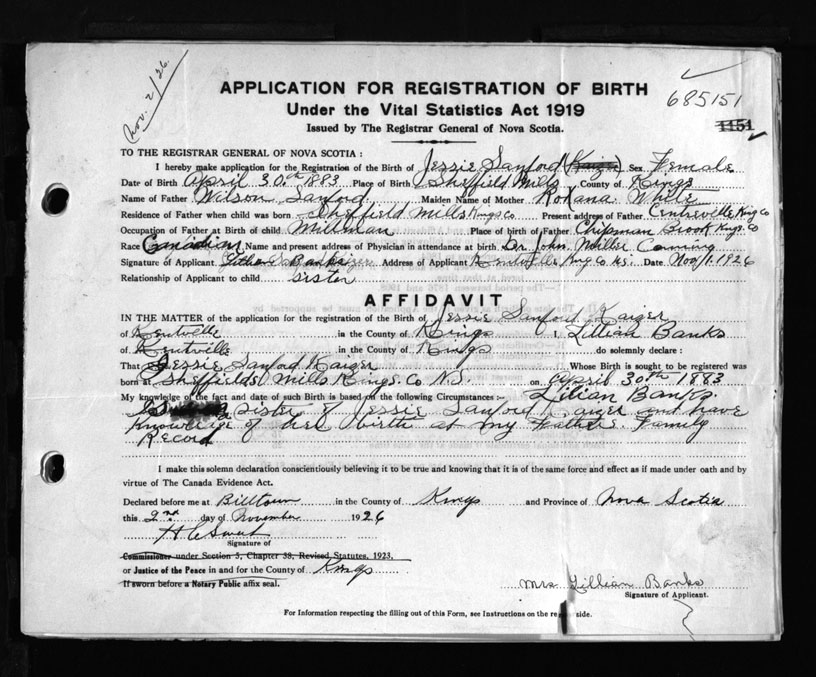 Nov. 2/26.
APPLICATION FOR REGISTRATION OF BIRTH
685151
Under the Vital Statistics Act 1919
1151
Issued by The Registrar General of Nova Scotia.
TO THE REGISTRAR GENERAL OF NOVA SCOTIA :
I hereby make application for the Registration of the Birth of Jessie Sanford (Kaizer) Sex Female
Date of Birth April 30th 1883 Place of Birth Sheffield Mills County of Kings
Name of Father Wilson Sanford, Maiden Name of Mother Roxana White
Residence of Father when child was born Sheffield Mills Kings Co Present address of Father Centreville King Co
Occupation of Father at Birth of child Millman Place of birth of Father Chipman Brook Kings. Co
Race Canadian Name and present address of Physician in attendance at birth Dr. John Miller Canning
Signature of Applicant Banks Address of Applicant Kentville King Co NS. Date Nov/1.1926
Relationship of Applicant to child sister
AFFIDAVIT
IN THE MATTER of the application for the registration of the Birth of Jessie Sanford Kaizer
of Kentville in the County of Kings I, Lillian Banks
of Kentville in the County of Kings do solemnly declare :
That Jessie Sanford Kaizer Whose Birth is sought to be registered was
born at Sheffields Mills Kings. Co N.S. on April 30th 1883
My knowledge of the fact and date of such Birth is based on the following Circumstances :- Lilian Banks.
sister of Jessie Sanford Kaizer and have
knowledge of her birth at my Fathers. Family
Record
I make this solemn declaration conscientiously believing it to be true and knowing that it is of the same force and effect as if made under oath and by
virtue of The Canada Evidence Act.
Declared before me at Billtown in the County of Kings and Province of Nova Scotia
this 2nd day of November 1926
Signature of
Commissioner under Section 5, Chapter 38, Revised Statutes, 1923,
or Justice of the Peace in and for the County of Kings
If sworn before a Notary Public affix seal.
Mrs Lillian Banks
Signature of Applicant.
For Information respecting the filling out of this Form, see Instructions on the side.